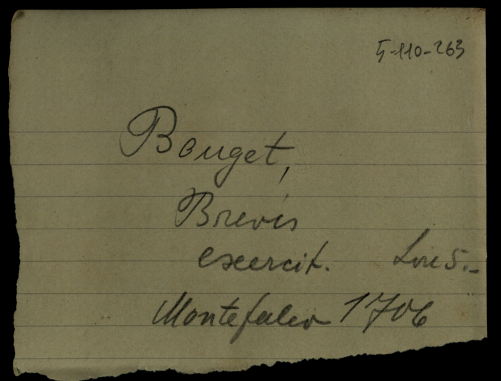 5-110-263
Bouget,
Brevis
exercit. Lire 5.-
Montefalco 1706